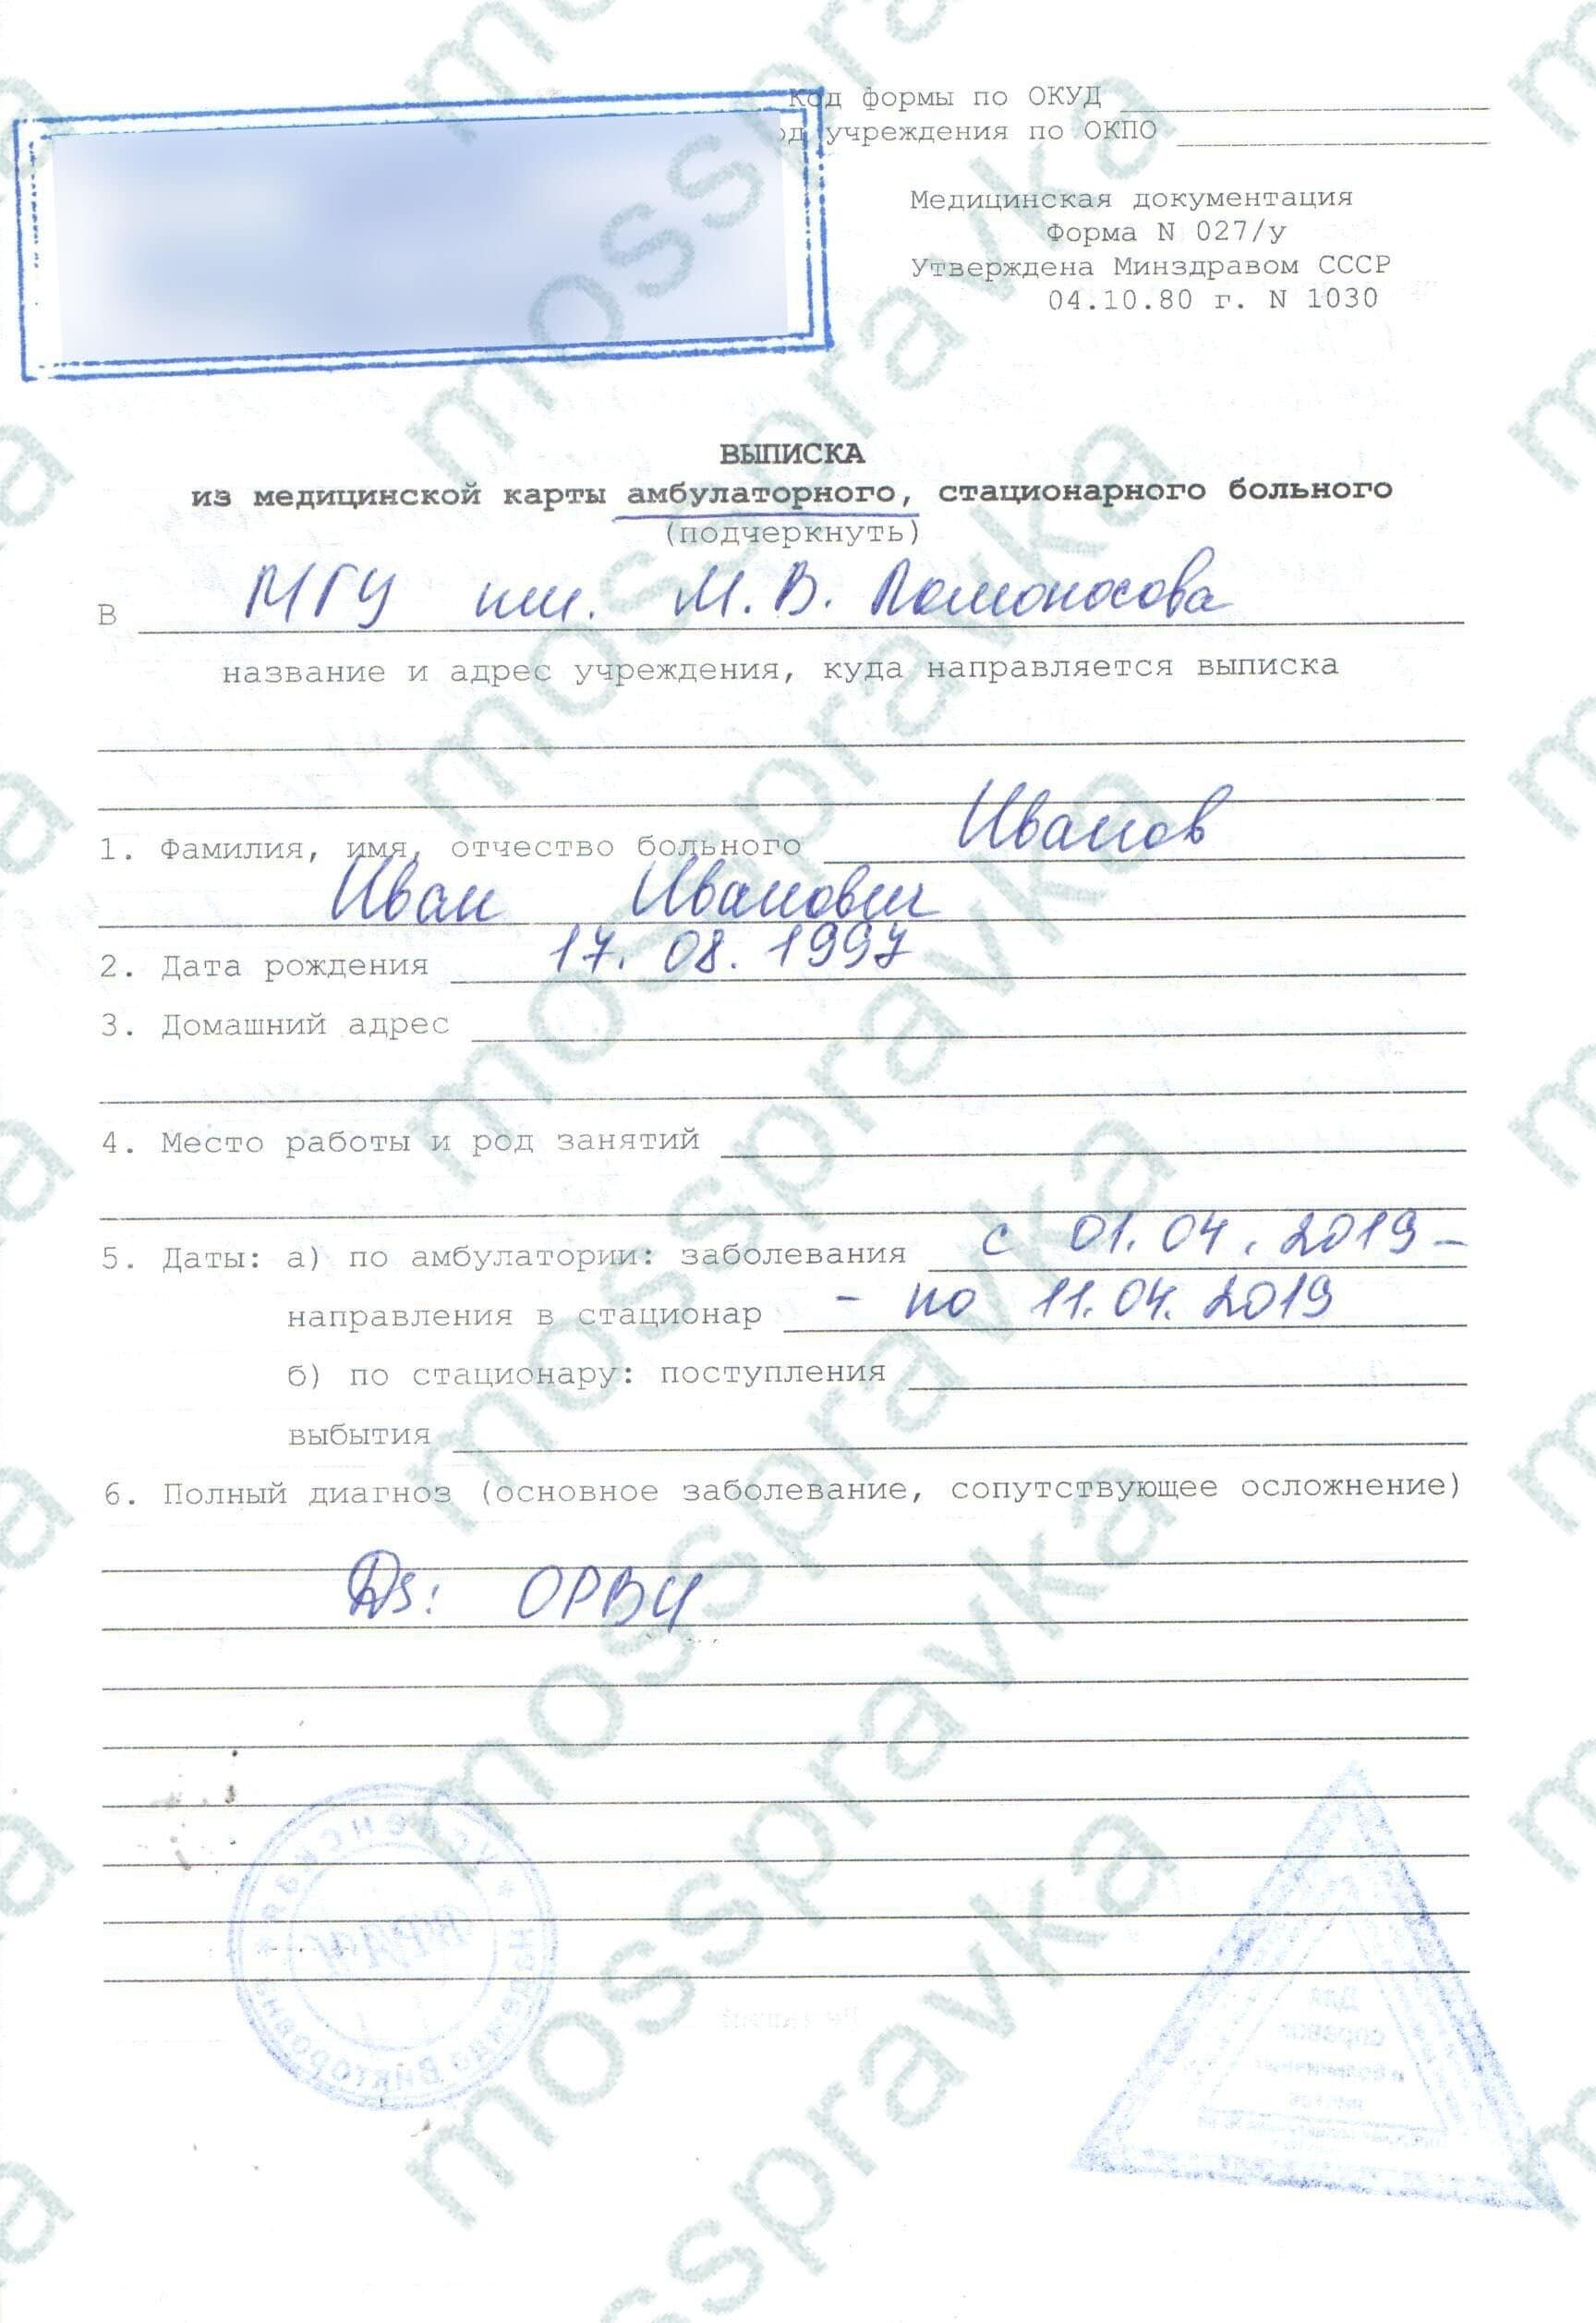 Код формы по ОКУД
од учреждения по ОКПО
Медицинская документация
Форма N 027/у
Утверждена Минздравом СССР
04.10.80 г. N 1030
ВЫПИСКА
из медицинской карты амбулаторного, стационарного больного
(подчеркнуть)
В МГУ им. М.В. Ломоносова
название и адрес учреждения, куда направляется выписка
1. Фамилия, имя, отчество больного Иванов
Иван Иванович
2. Дата рождения 17.08.1997
3. Домашний адрес
4. Место работы и род занятий
5. Даты: а) по амбулатории: заболевания с 01.04.2019 -
направления в стационар - по 11.04.2019
б) по стационару: поступления
выбытия
6. Полный диагноз (основное заболевание, сопутствующее осложнение)
Ds: ОРВИ
mosspravka